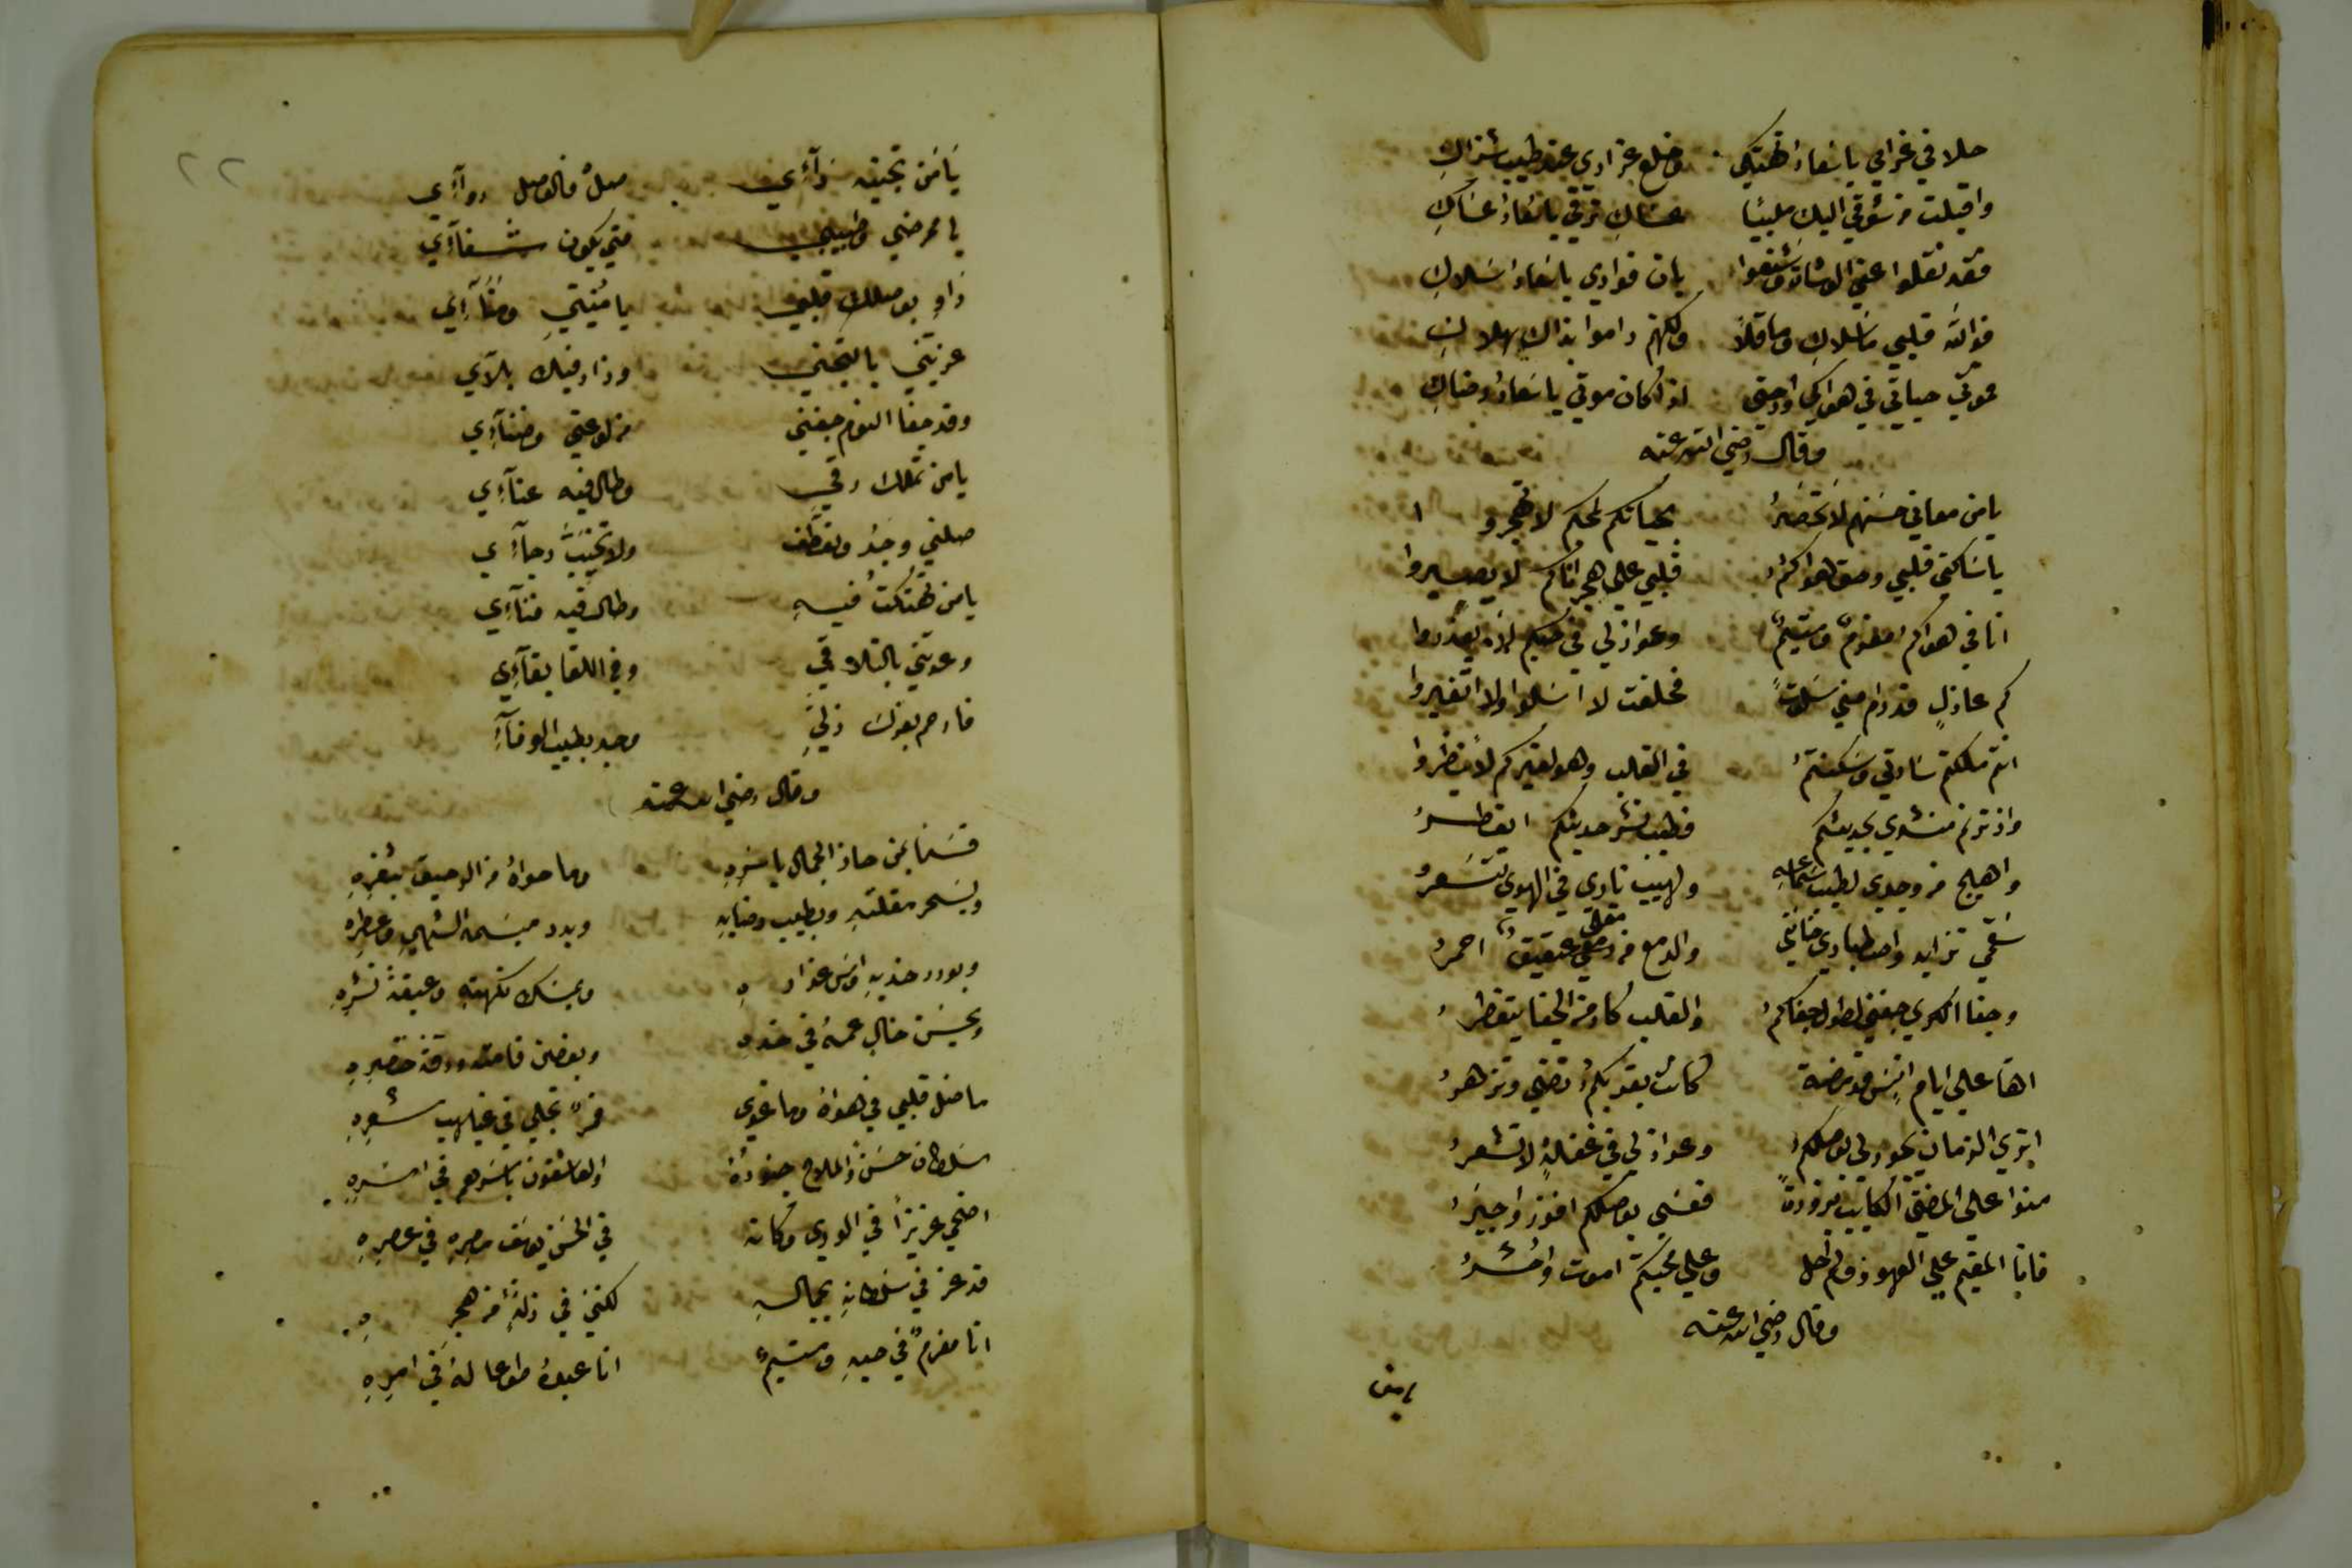 حلا في غرامي يا سعاد تهتكي وخلع عذاري عند طيب شذاك
واقبلت من شوقي اليك ملبيا عساك ترقي يا سعاد عساك
فقد نقلوا عني الوشاة وشنعوا بان فوادي يا سعاد سلاك
فوالله قلبي ما سلاك وما قلا ولكنهم راموا بذاك هلاك
فموتي حياتي في هواكي وراحتي اذا كان موتي يا سعاد رضاك
وقال رضي الله عنه
يا من معاني حسنهم لا تحصر بحياتكم لمحبكم لا تهجروا
يا ساكني قلبي وحق هواكم قلبي علي هجرانكم لا يصبروا
انا في هواكم مغرم ومتيم وعواذلي في حبكم لم يعذروا
كم عاذل قد رام مني سلوة فحلفت لا اسلوا ولا اتغيروا
انتم ملكتم سادتي وسكنتم في القلب وهو لغيركم لا ينظروا
واذ ترنم منشدي بحديثكم فطيب نشر حديثكم اتعطر
واهيج من وجدي لطيب سماعه ولهيب ناري في الهوي تتسعر
سقمي تزايد واصطباري خانني والدمع من مقلتي عقيق احمر
وجفا الكري جفني لطول جفاكم والقلب كاد من الجفا يتفطر
اها علي ايام انس قد مضت كانت بقربكم تضي وتزهر
اتري الزمان يجود لي بوصلكم وعواذلي في غفلة لا تشعر
منوا علي المضني الكئيب بزورة فعسي بوصلكم افوز واجبر
فانا المقيم علي العهود ولم احل وعلي محبتكم اموت واحشر
وقال رضي الله عنه
يا من
٢٢
يا من تجنيه دآءي صل فالوصل دوآءي
يا ممرضي وطبيبي متي يكون شفآءي
داو بوصلك قلبي يا منيتي ومنآءي
عذبتني بالتجني وزاد فيك بلآءي
وقد جفا النوم جفني من لوعتي وضنآءي
يا من تملك رقي وطال فيه عنآءي
صلني وجد وتعطف ولا تخيب رجآءي
يا من تهتكت فيه وطال فيه فنآءي
وعدتني بالتلاقي وفي اللقا بقآءي
فارحم بعزك ذلي وجد بطيب الوفآء
وقال رضي الله عنه
قسما بمن حاز الجمال باسره وما حواه من الرحيق بثغره
وبسحر مقلته وبطيب رضابه وبدر مبسمه الشهي وعطره
وبورد خديه واس عذاره وبمسك نكهته وعبقة نشره
وبحسن خال عمه في خده وبغصن قامته ورقة خصره
ما ضل قلبي في هواه وما غوي قمر تجلي في غياهب شعره
سلطان حسن والملاح جنوده والعاشقون باسرهم في اسره
اضحي عزيزا في الوري وكانه في الحسن يوسف مصره في عصره
قد عز في سلطانه بجماله لكنني في ذلة من هجره
انا مغرم في حبه ومتيم انا عبده طوعا له في امره